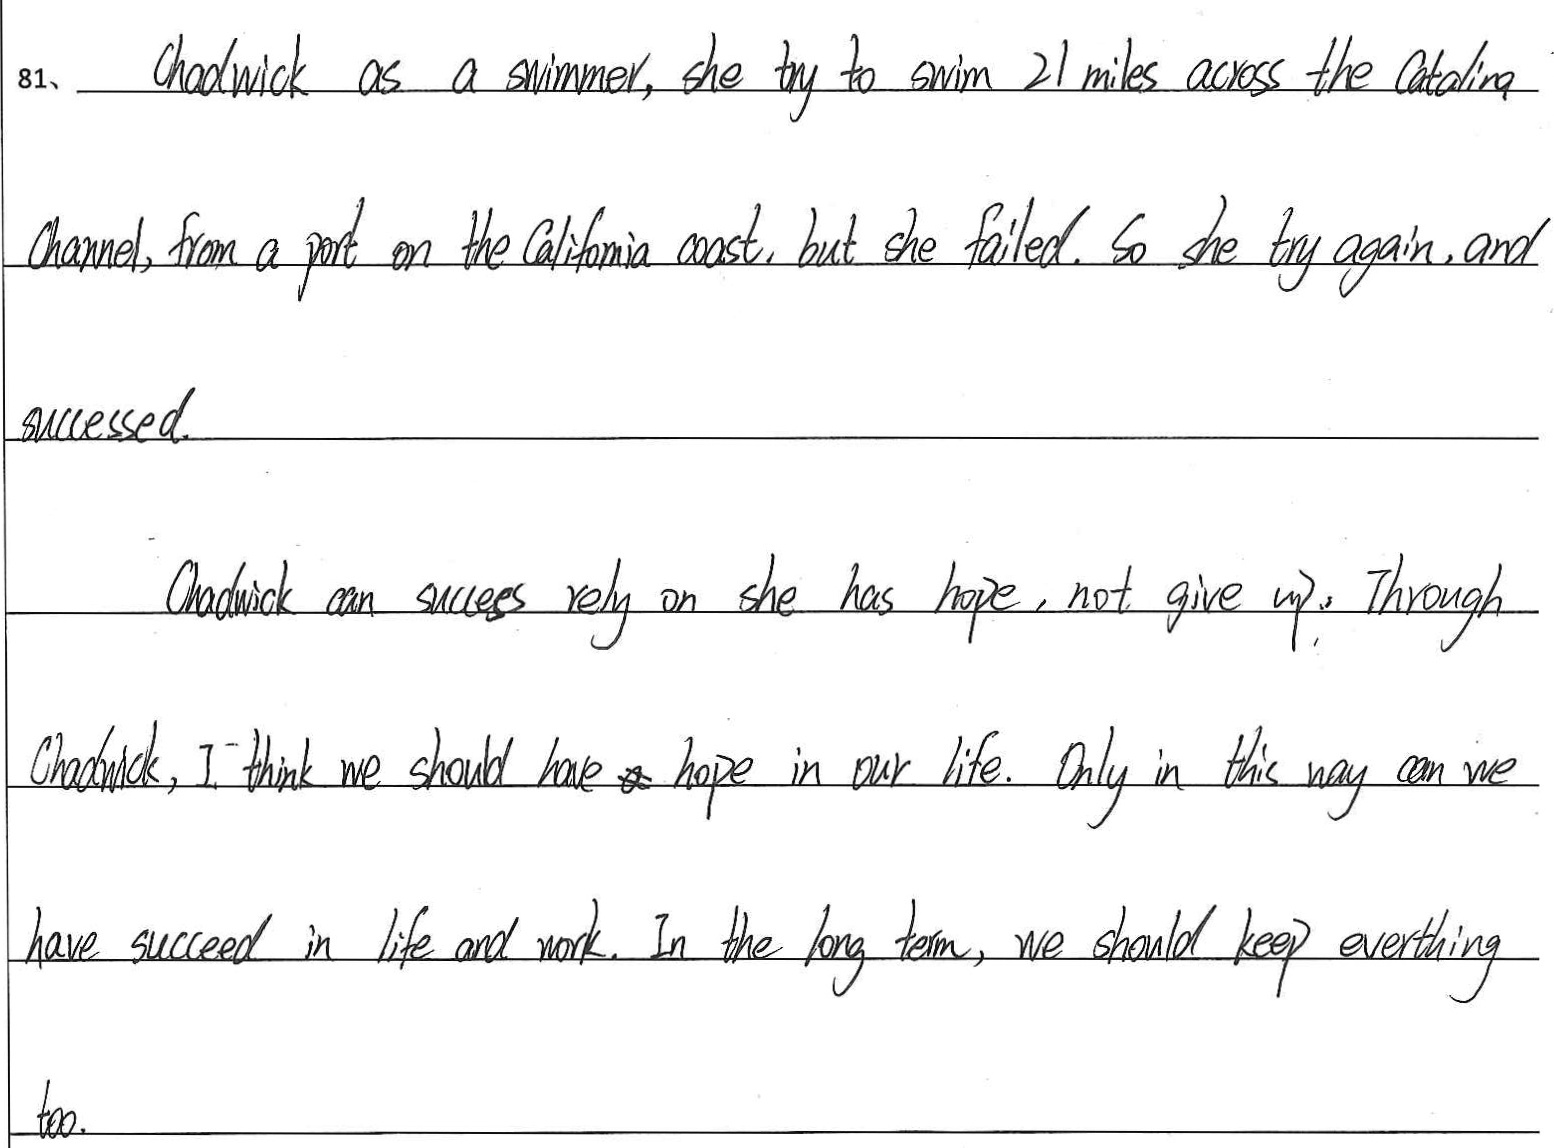 81、 Chadwick as a swimmer, she try to swim 21 miles across the Catalina
Channel, from a port on the California coast, but she failed. So she try again, and
successed.
Chadwick can success rely on she has hope, not give up. Through
Chadwick, I think we should have hope in our life. Only in this way can we
have succeed in life and work. In the long term, we should keep everthing
too.